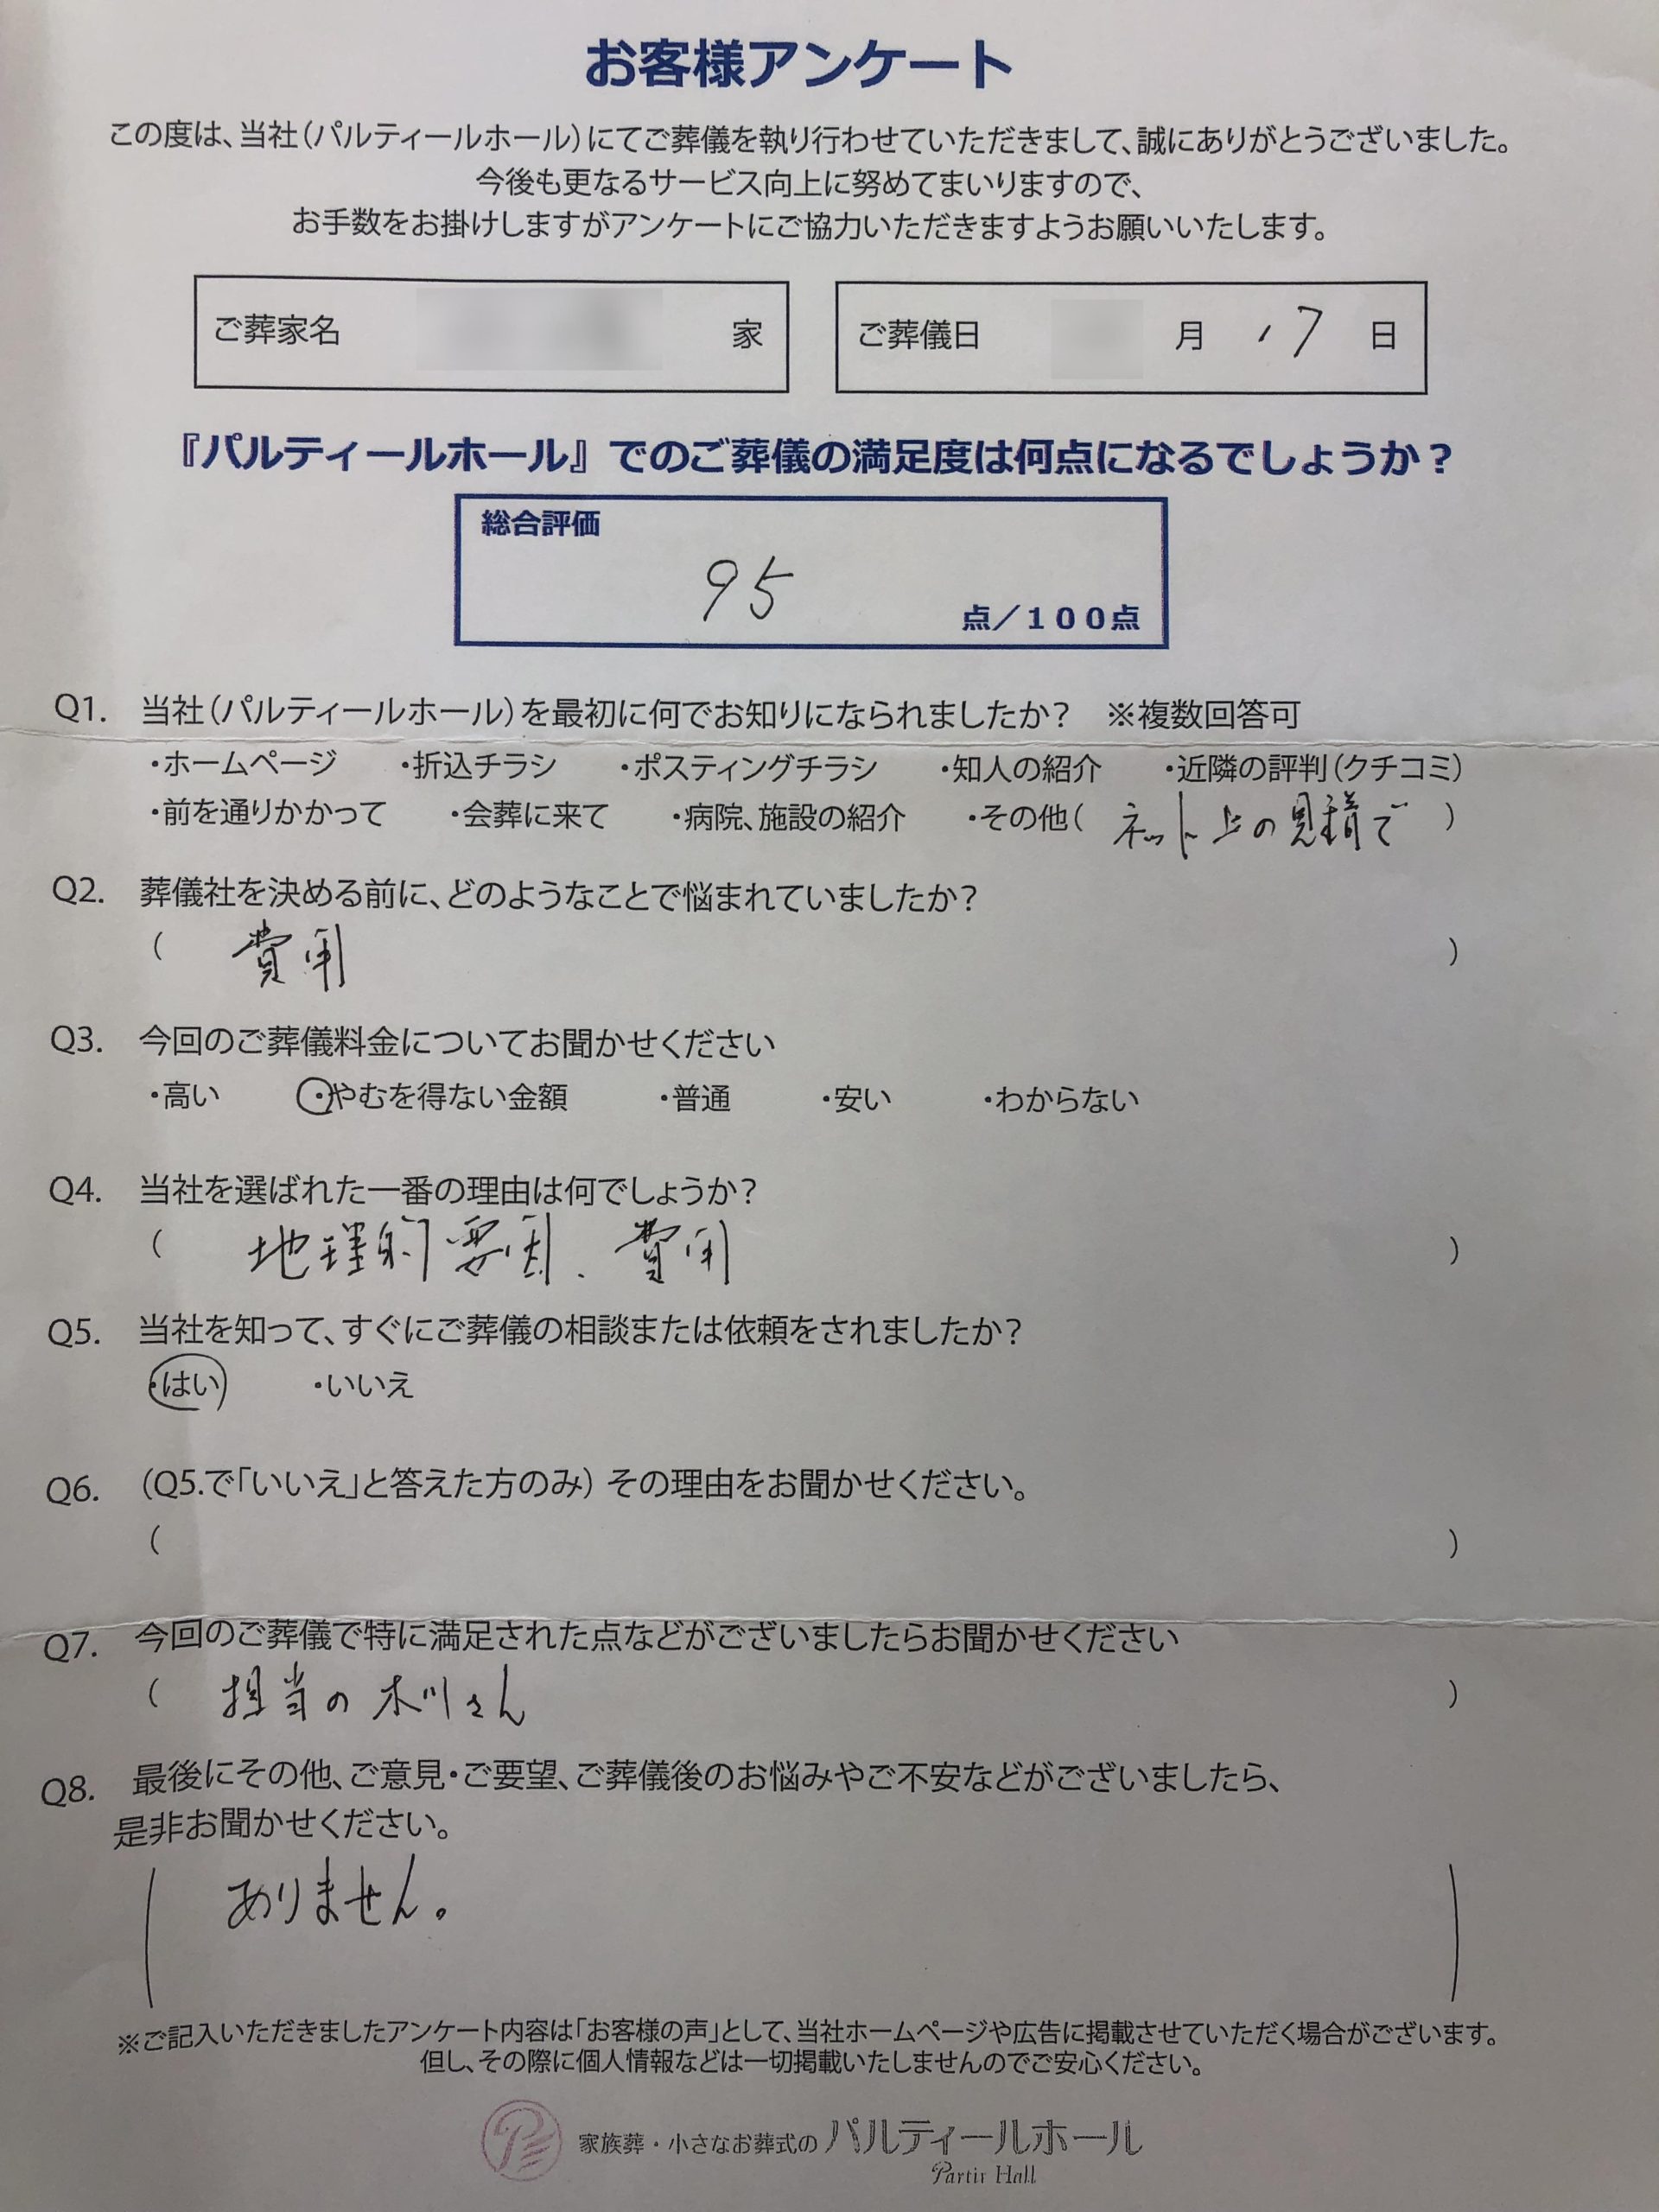 お客様アンケート
この度は、当社(パルティールホール)にてご葬儀を執り行わせていただきまして、誠にありがとうございました。
今後も更なるサービス向上に努めてまいりますので、
お手数をお掛けしますがアンケートにご協力いただきますようお願いいたします。
ご葬家名 家 ご葬儀日 月 17 日
『パルティールホール』でのご葬儀の満足度は何点になるでしょうか?
総合評価
95 点/100点
Q1. 当社(パルティールホール)を最初に何でお知りになられましたか? ※複数回答可
・ホームページ ・折込チラシ ・ポスティングチラシ ・知人の紹介 ・近隣の評判(クチコミ)
・前を通りかかって ・会葬に来て ・病院、施設の紹介 ・その他( ネット上の見積で )
Q2. 葬儀社を決める前に、どのようなことで悩まれていましたか?
( 費用 )
Q3. 今回のご葬儀料金についてお聞かせください
・高い ・やむを得ない金額 ・普通 ・安い ・わからない
Q4. 当社を選ばれた一番の理由は何でしょうか?
( 地理的要因、費用 )
Q5. 当社を知って、すぐにご葬儀の相談または依頼をされましたか?
・はい ・いいえ
Q6. (Q5.で「いいえ」と答えた方のみ) その理由をお聞かせください。
( )
Q7. 今回のご葬儀で特に満足された点などがございましたらお聞かせください
( 担当の木川さん )
Q8. 最後にその他、ご意見・ご要望、ご葬儀後のお悩みやご不安などがございましたら、
是非お聞かせください。
( ありません。 )
※ご記入いただきましたアンケート内容は「お客様の声」として、当社ホームページや広告に掲載させていただく場合がございます。
但し、その際に個人情報などは一切掲載いたしませんのでご安心ください。
家族葬・小さなお葬式の パルティールホール
Partir Hall